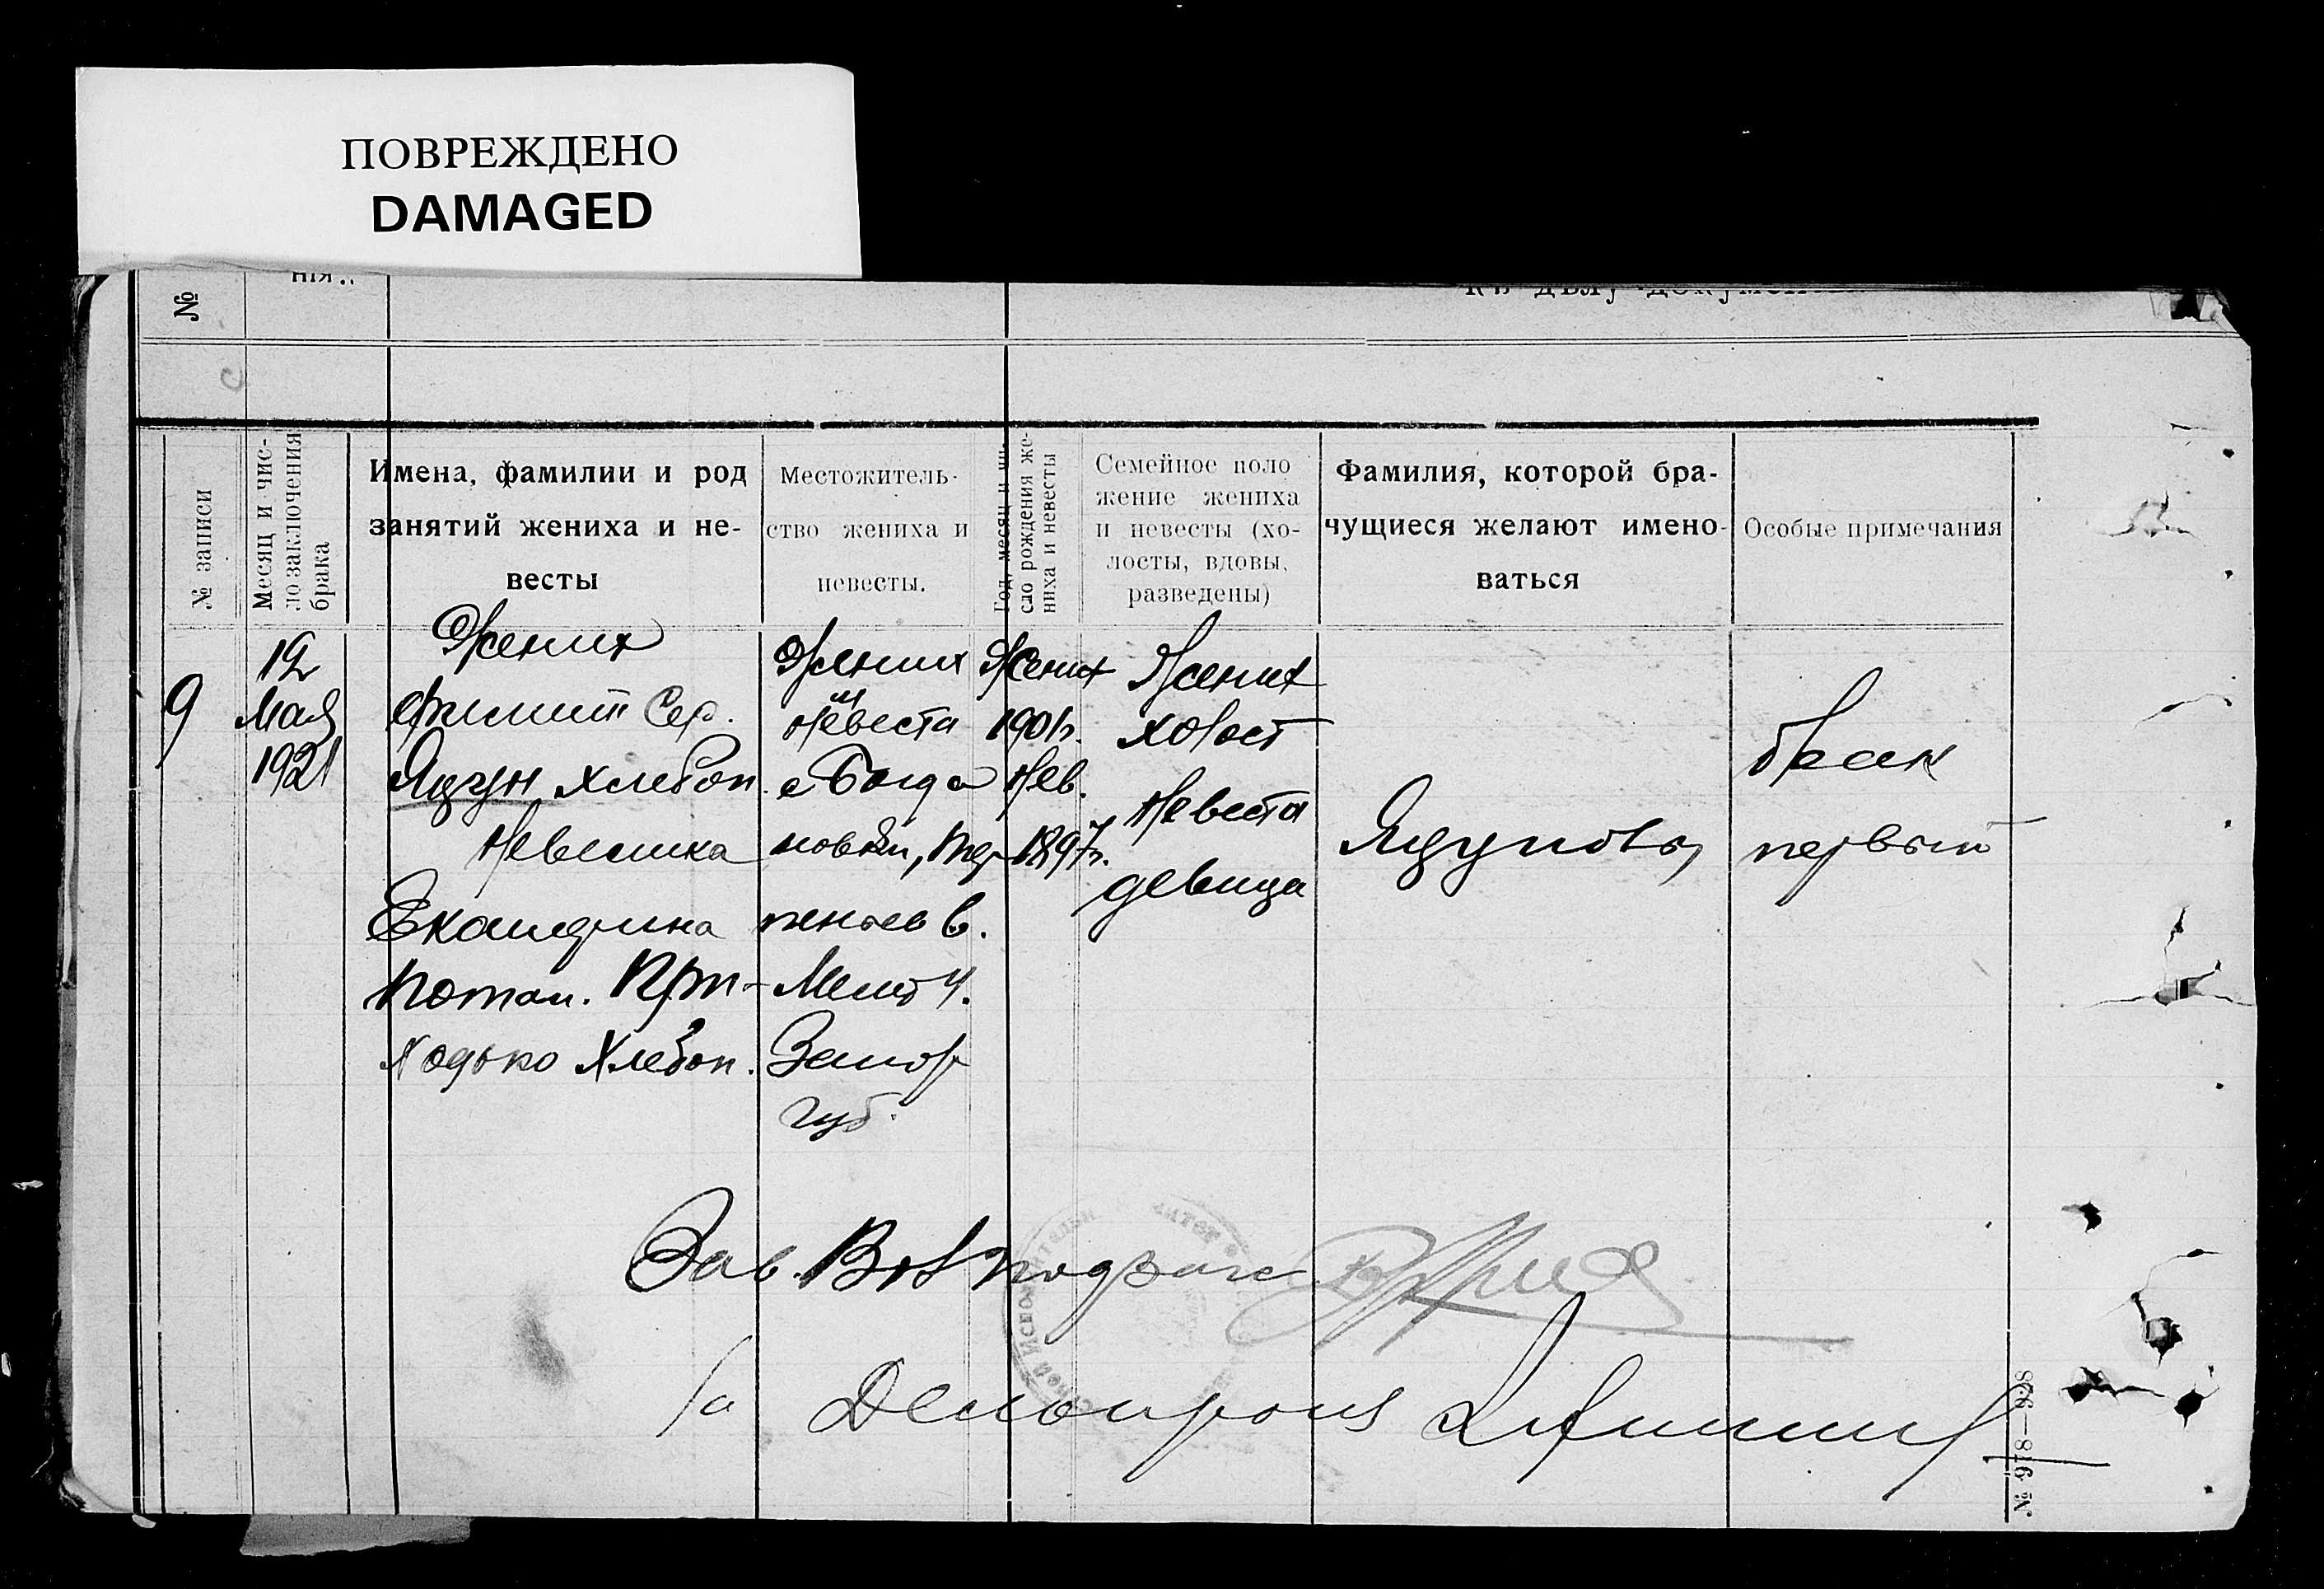 ПОВРЕЖДЕНО
DAMAGED
№
нія..
№ записи
Месяц и чис-
ло заключения
брака
Имена, фамилии и род
занятий жениха и не-
весты
Местожитель-
ство жениха и
невесты.
Год, месяц и чи-
сло рождения же-
ниха и невесты
Семейное поло
жение жениха
и невесты (хо-
лосты, вдовы,
разведены)
Фамилия, которой бра-
чущиеся желают имено-
ваться
Особые примечания
9
12
Мая
1921
Жених
Филипп Сер.
Яцун хлебоп.
Невестка
Екатерина
Потап. При-
ходько Хлебоп.
Жених
и
невеста
с Богда
новки, Тер
пеньев в.
Мелит у.
Запор
губ.
Жених
1901г.
Нев.
1897г.
Жених
холост
Невеста
девица
Яцунова
брак
первый
Зав. Вол подзагс
Делопроиз
№ 978—928